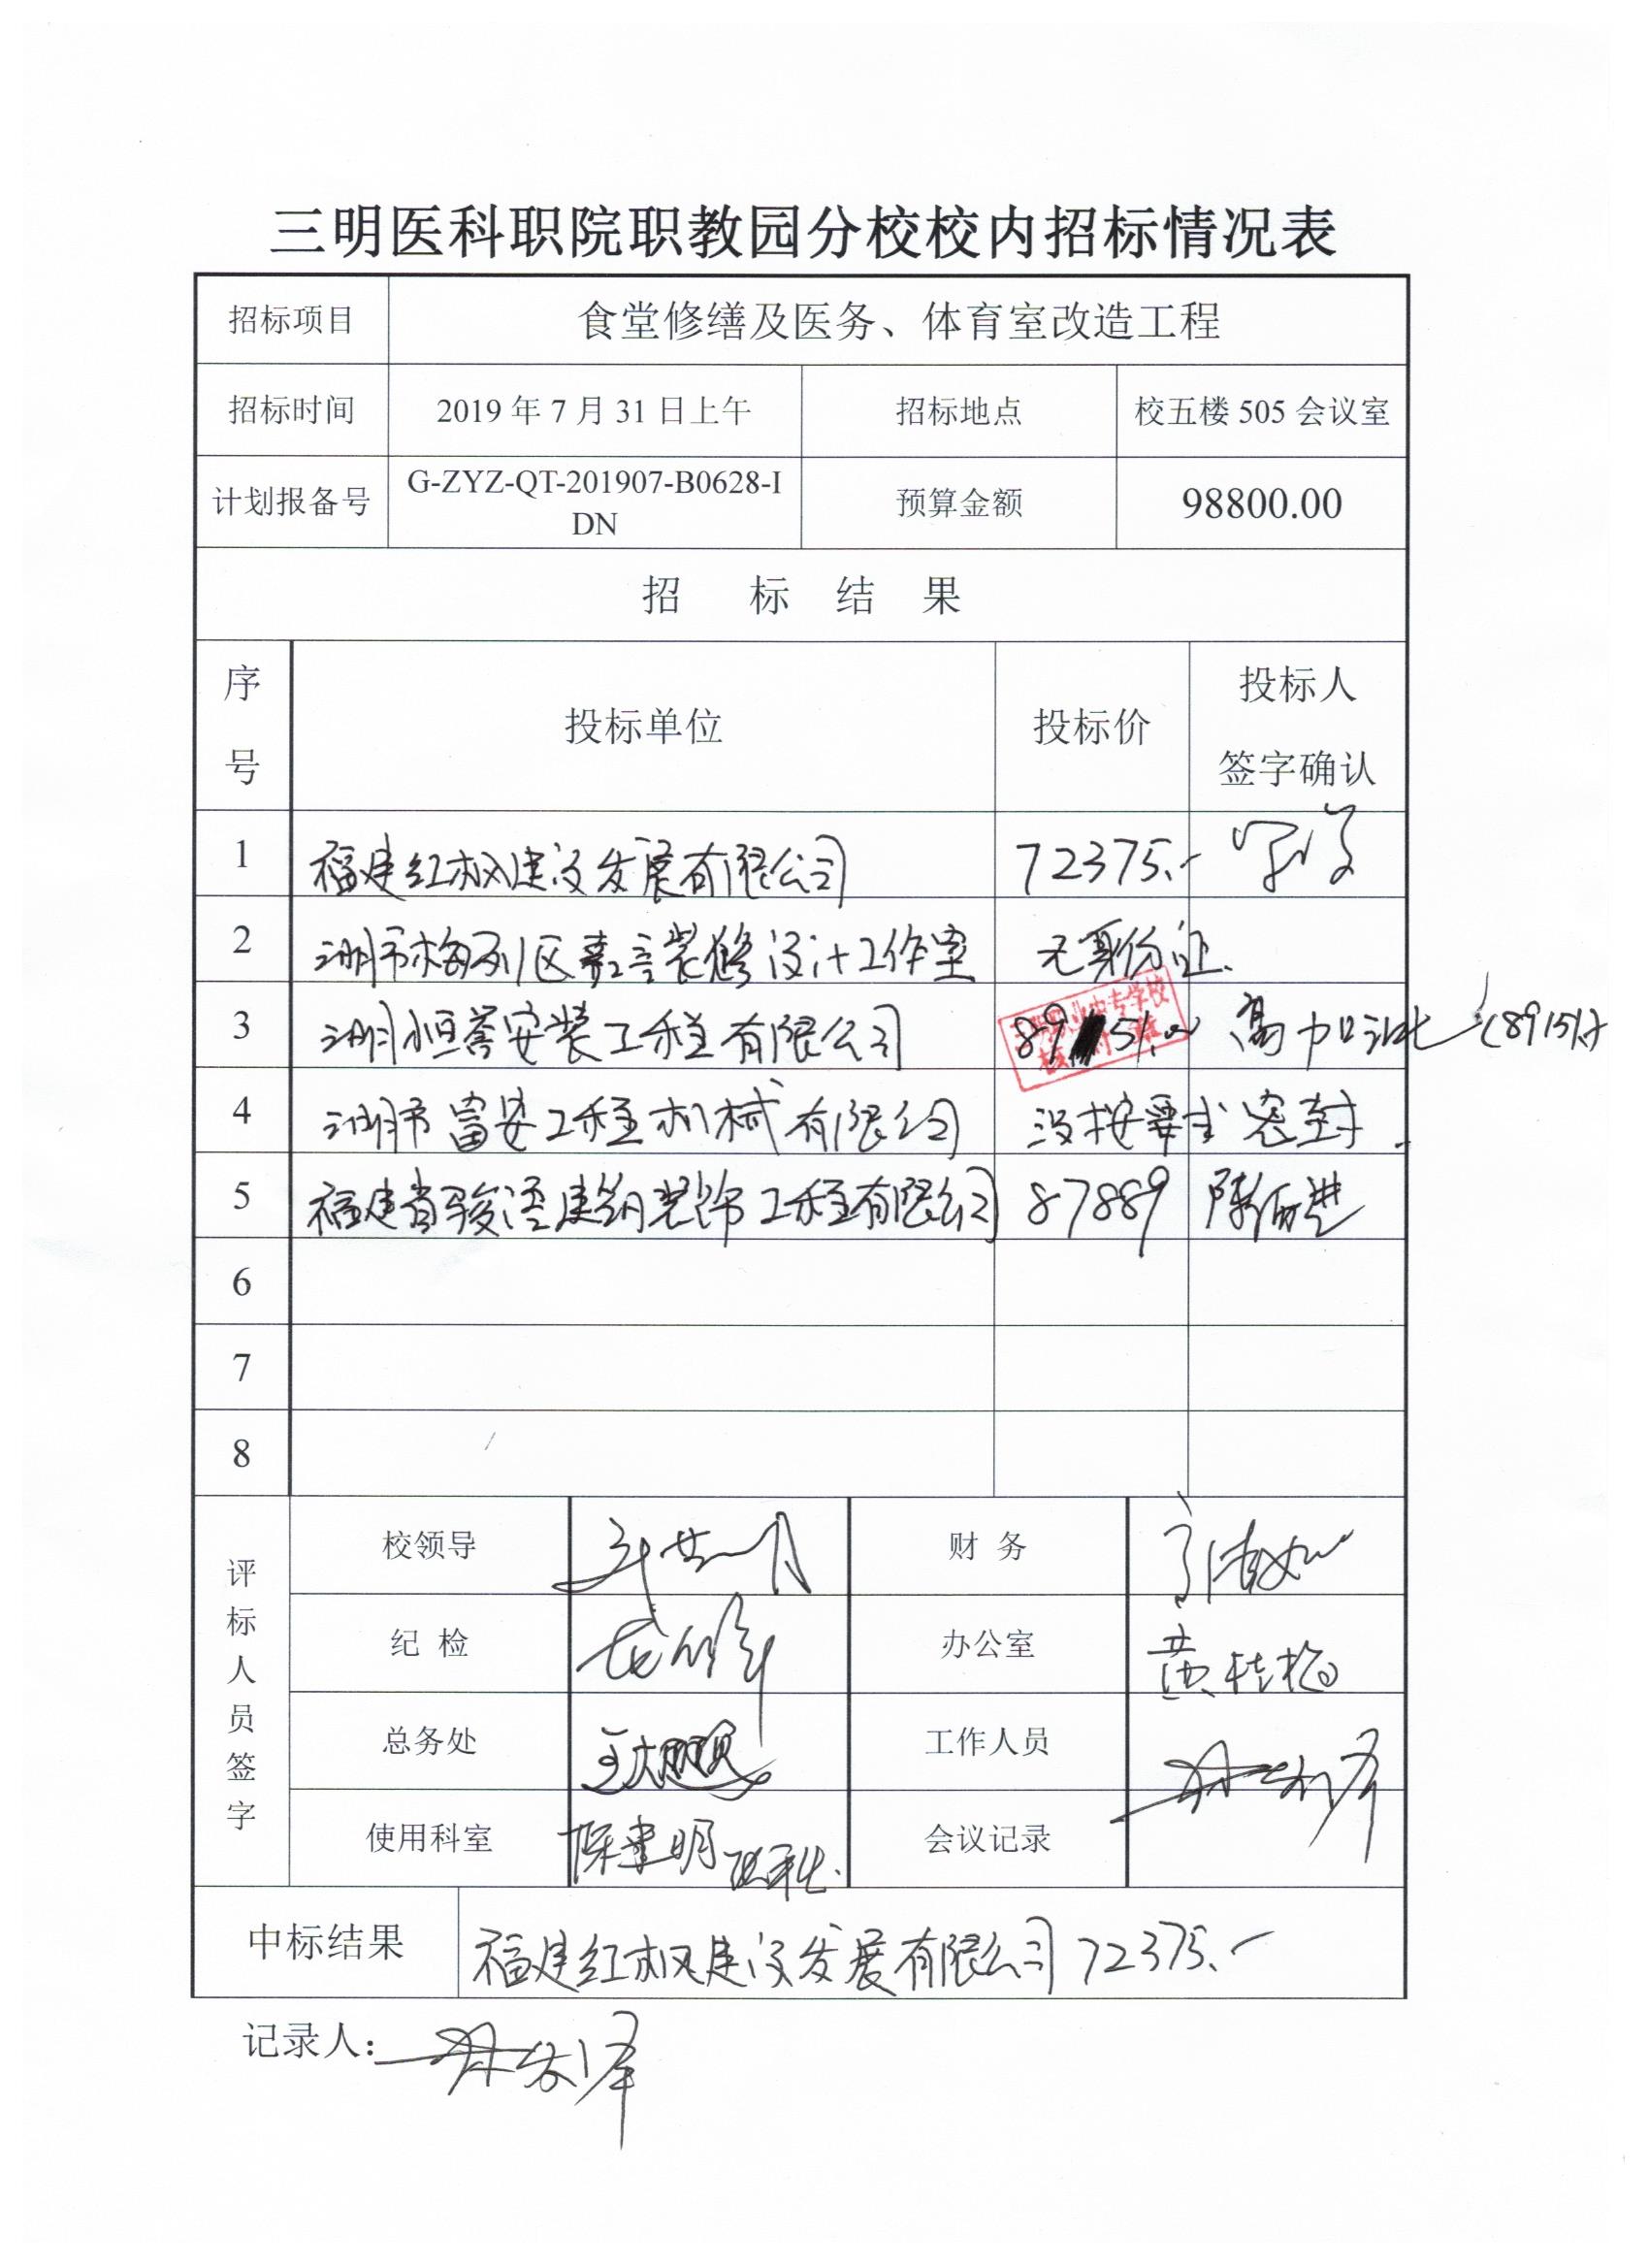 三明医科职院职教园分校校内招标情况表
招标项目 食堂修缮及医务、体育室改造工程
招标时间 2019年7月31日上午 招标地点 校五楼505会议室
计划报备号 G-ZYZ-QT-201907-B0628-I
DN 预算金额 98800.00
招 标 结 果
序号 投标单位 投标价 投标人
签字确认
1 福建红枫建设发展有限公司 72375.-
2 三明市梅列区嘉言装修设计工作室 无身份证.
3 三明恒誉安装工程有限公司 89 51.00 (89151.-)
4 三明市富安工程机械有限公司 没按要求密封.
5 福建省骏泽建筑装饰工程有限公司 87889
6
7
8
评标人员签字
校领导 财务
纪检 办公室 黄桂梅
总务处 王大鹏 工作人员
使用科室 陈建明 会议记录
中标结果 福建红枫建设发展有限公司 72375.-
记录人：